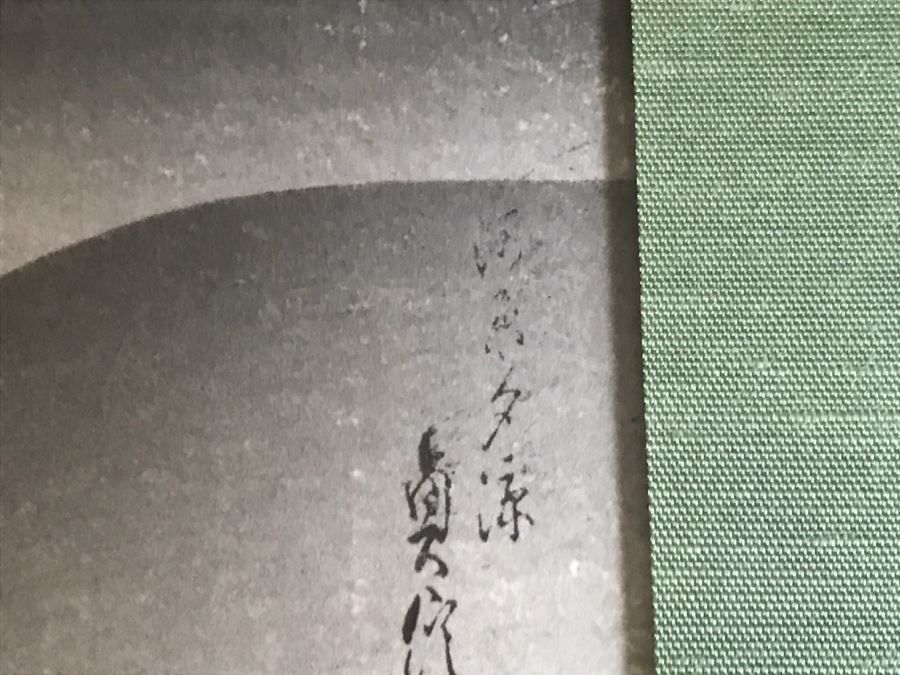 河原夕涼
貞